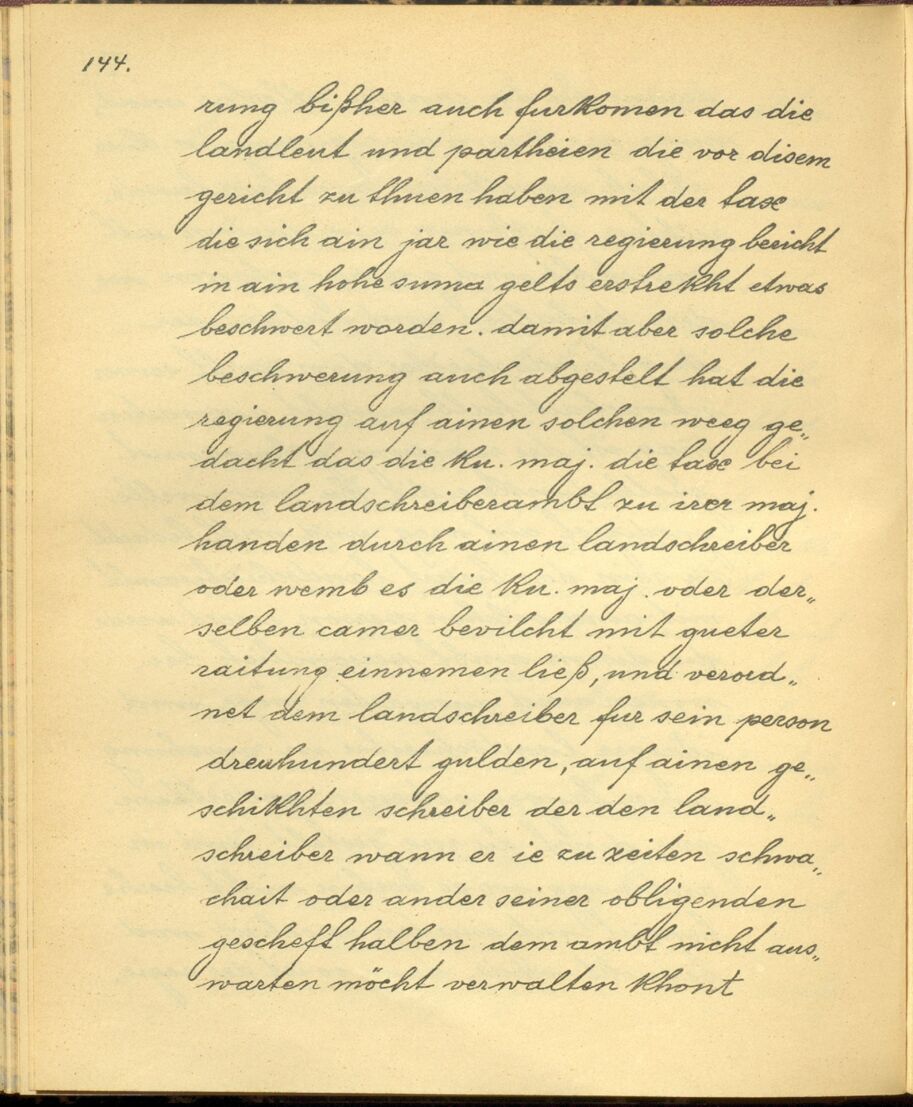 144.
rung bißher auch furkomen das die
landleut und partheien die vor disem
gericht zu thuen haben mit der taxe
die sich ain jar wie die regierung bericht
in ain hohe suma gelts erstrekht etwas
beschwert worden. damit aber solche
beschwerung auch abgestelt hat die
regierung auf ainen solchen weeg ge„
dacht das die ku. maj. die taxe bei
dem landschreiberambt zu irer maj.
handen durch ainen landschreiber
oder wemb es die ku. maj. oder der„
selben camer bevilcht mit gueter
raitung einnemen ließ, und verord„
net dem landschreiber fur sein person
dreuhundert gulden, auf ainen ge„
schikhten schreiber der den land„
schreiber wann er ie zu zeiten schwa„
chait oder ander seiner obligenden
gescheft halben dem ambt nicht aus„
warten möcht verwalten khont